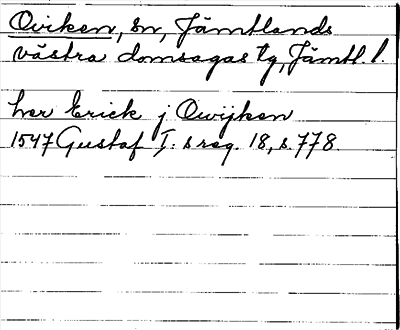 Oviken, sn, Jämtlands
västra domsagas tg, Jämtl. l.
her Erick j Owijken
1547 Gustaf I:s reg. 18, s. 778.